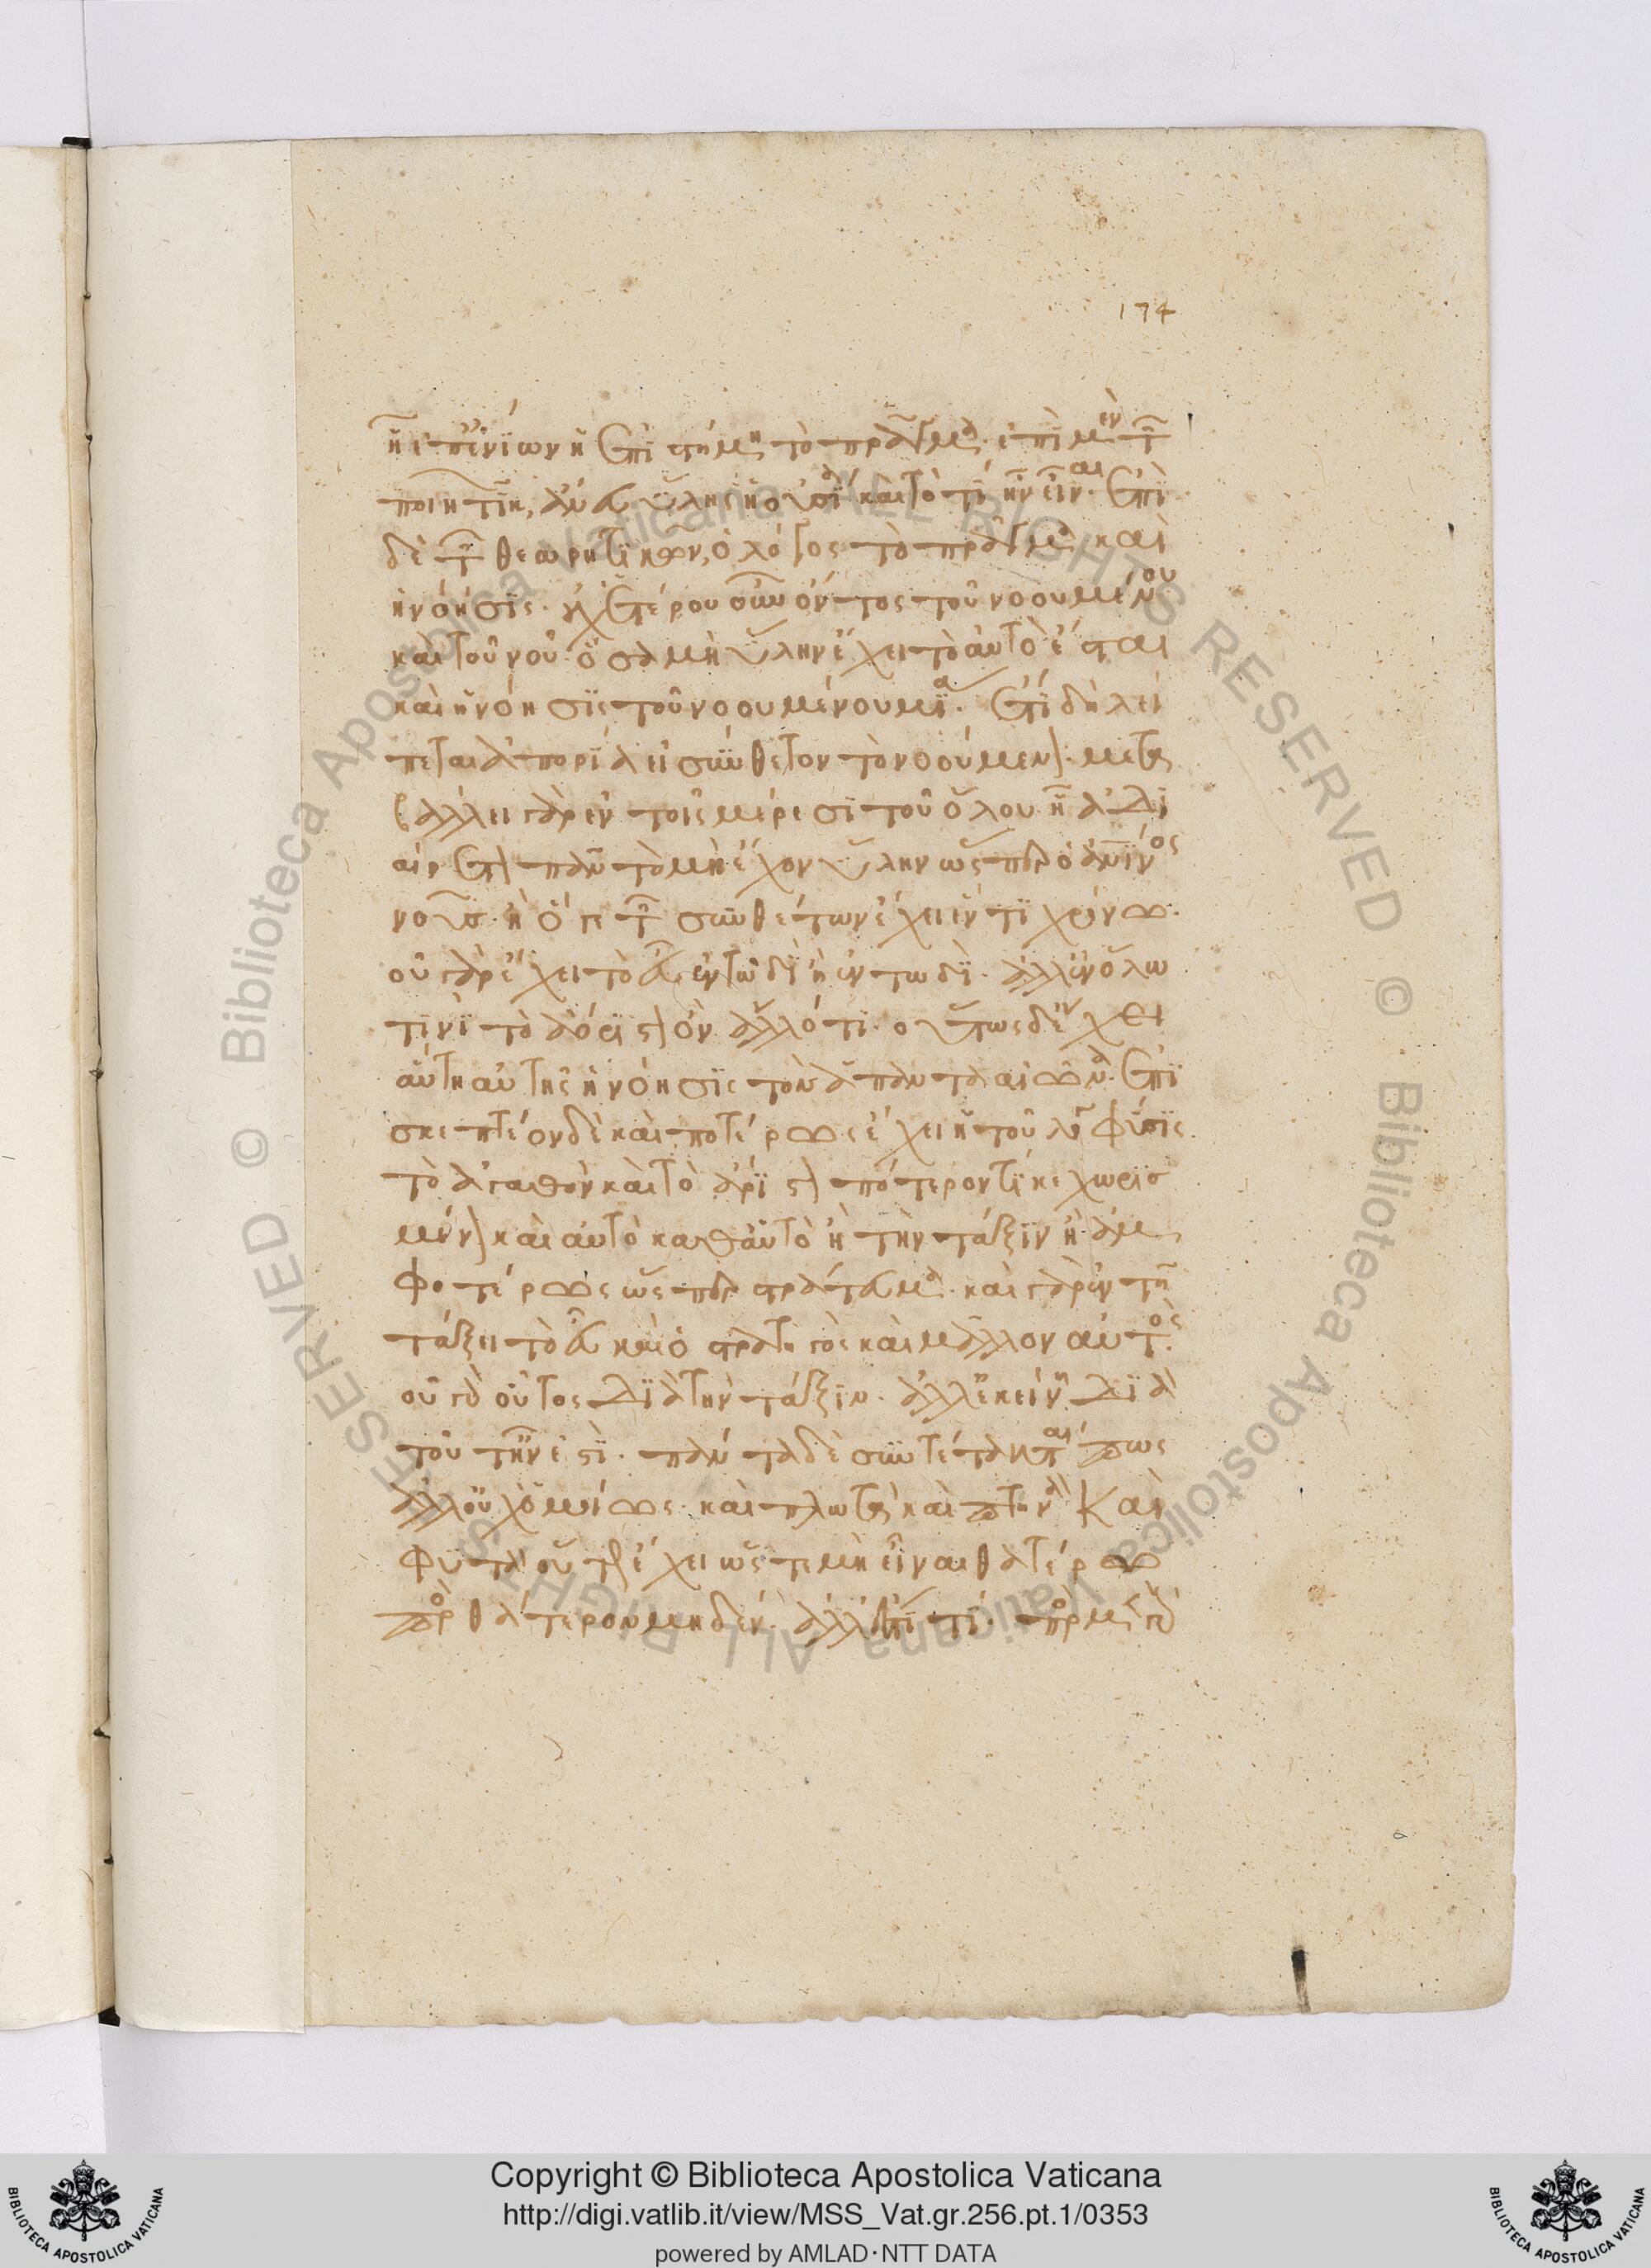 174
ἢ ἐπ' ἐνίων ἡ ἐπιστήμη τὸ πρᾶγμα. ἐπὶ μὲν τῶν
ποιητικῶν, ἄνευ ὕλης ἡ οὐσία καὶ τὸ τί ἦν εἶναι. ἐπὶ
δὲ τῶν θεωρητικῶν, ὁ λόγος τὸ πρᾶγμα καὶ
ἡ νόησις. οὐχ ἑτέρου οὖν ὄντος τοῦ νοουμένου
καὶ τοῦ νοῦ. ὅσα μὴ ὕλην ἔχει τὸ αὐτὸ ἔσται
καὶ ἡ νόησις τοῦ νοουμένου μία. ἔτι δὴ λεί
πεται ἀπορία εἰ σύνθετον τὸ νοούμενον. μετα
βάλλει γὰρ ἐν τοῖς μέρεσι τοῦ ὅλου. ἢ ἀδι
αίρετον πᾶν τὸ μὴ ἔχον ὕλην ὥσπερ ὁ ἀνθρώπινος
νοῦς. ἢ ὅ γε τῶν συνθέτων ἔχει ἔν τινι χρόνω.
οὐ γὰρ ἔχει τὸ εὖ ἐν τωδὶ ἢ ἐν τωδί. ἀλλ' ἐν ὅλω
τινὶ τὸ ἄριστον ὂν ἄλλό τι. οὕτως δ' ἔχει
αὐτὴ αὑτῆς ἡ νόησις τὸν ἅπαντα αἰῶνα. ἐπι
σκεπτέον δὲ καὶ ποτέρως ἔχει ἡ τοῦ ὅλου φύσις
τὸ ἀγαθὸν καὶ τὸ ἄριστον πότερον τί κεχωρισ
μένον καὶ αὐτὸ καθ' αὑτὸ ἢ τὴν τάξιν ἢ ἀμ
φοτέρως ὥσπερ στράτευμα. καὶ γὰρ ἐν τῇ
τάξει τὸ εὖ καὶ ὁ στρατηγὸς καὶ μᾶλλον αὐτός.
οὐ γὰρ οὗτος διὰ τὴν τάξιν. ἀλλ' ἐκείνη διὰ
τοῦτόν ἐστι. πάντα δὲ συντέτακταί πως
ἀλλ' οὐχ ὁμοίως. καὶ πλωτὰ καὶ πτηνὰ καὶ
φυτὰ. οὐχ οὕτως ἔχει ὥστε μὴ εἶναι θατέρω
πρὸς θάτερον μηδέν. ἀλλ' ἔστι τί. πρὸς μὲν γὰρ
Copyright © Biblioteca Apostolica Vaticana
http://digi.vatlib.it/view/MSS_Vat.gr.256.pt.1/0353
powered by AMLAD·NTT DATA